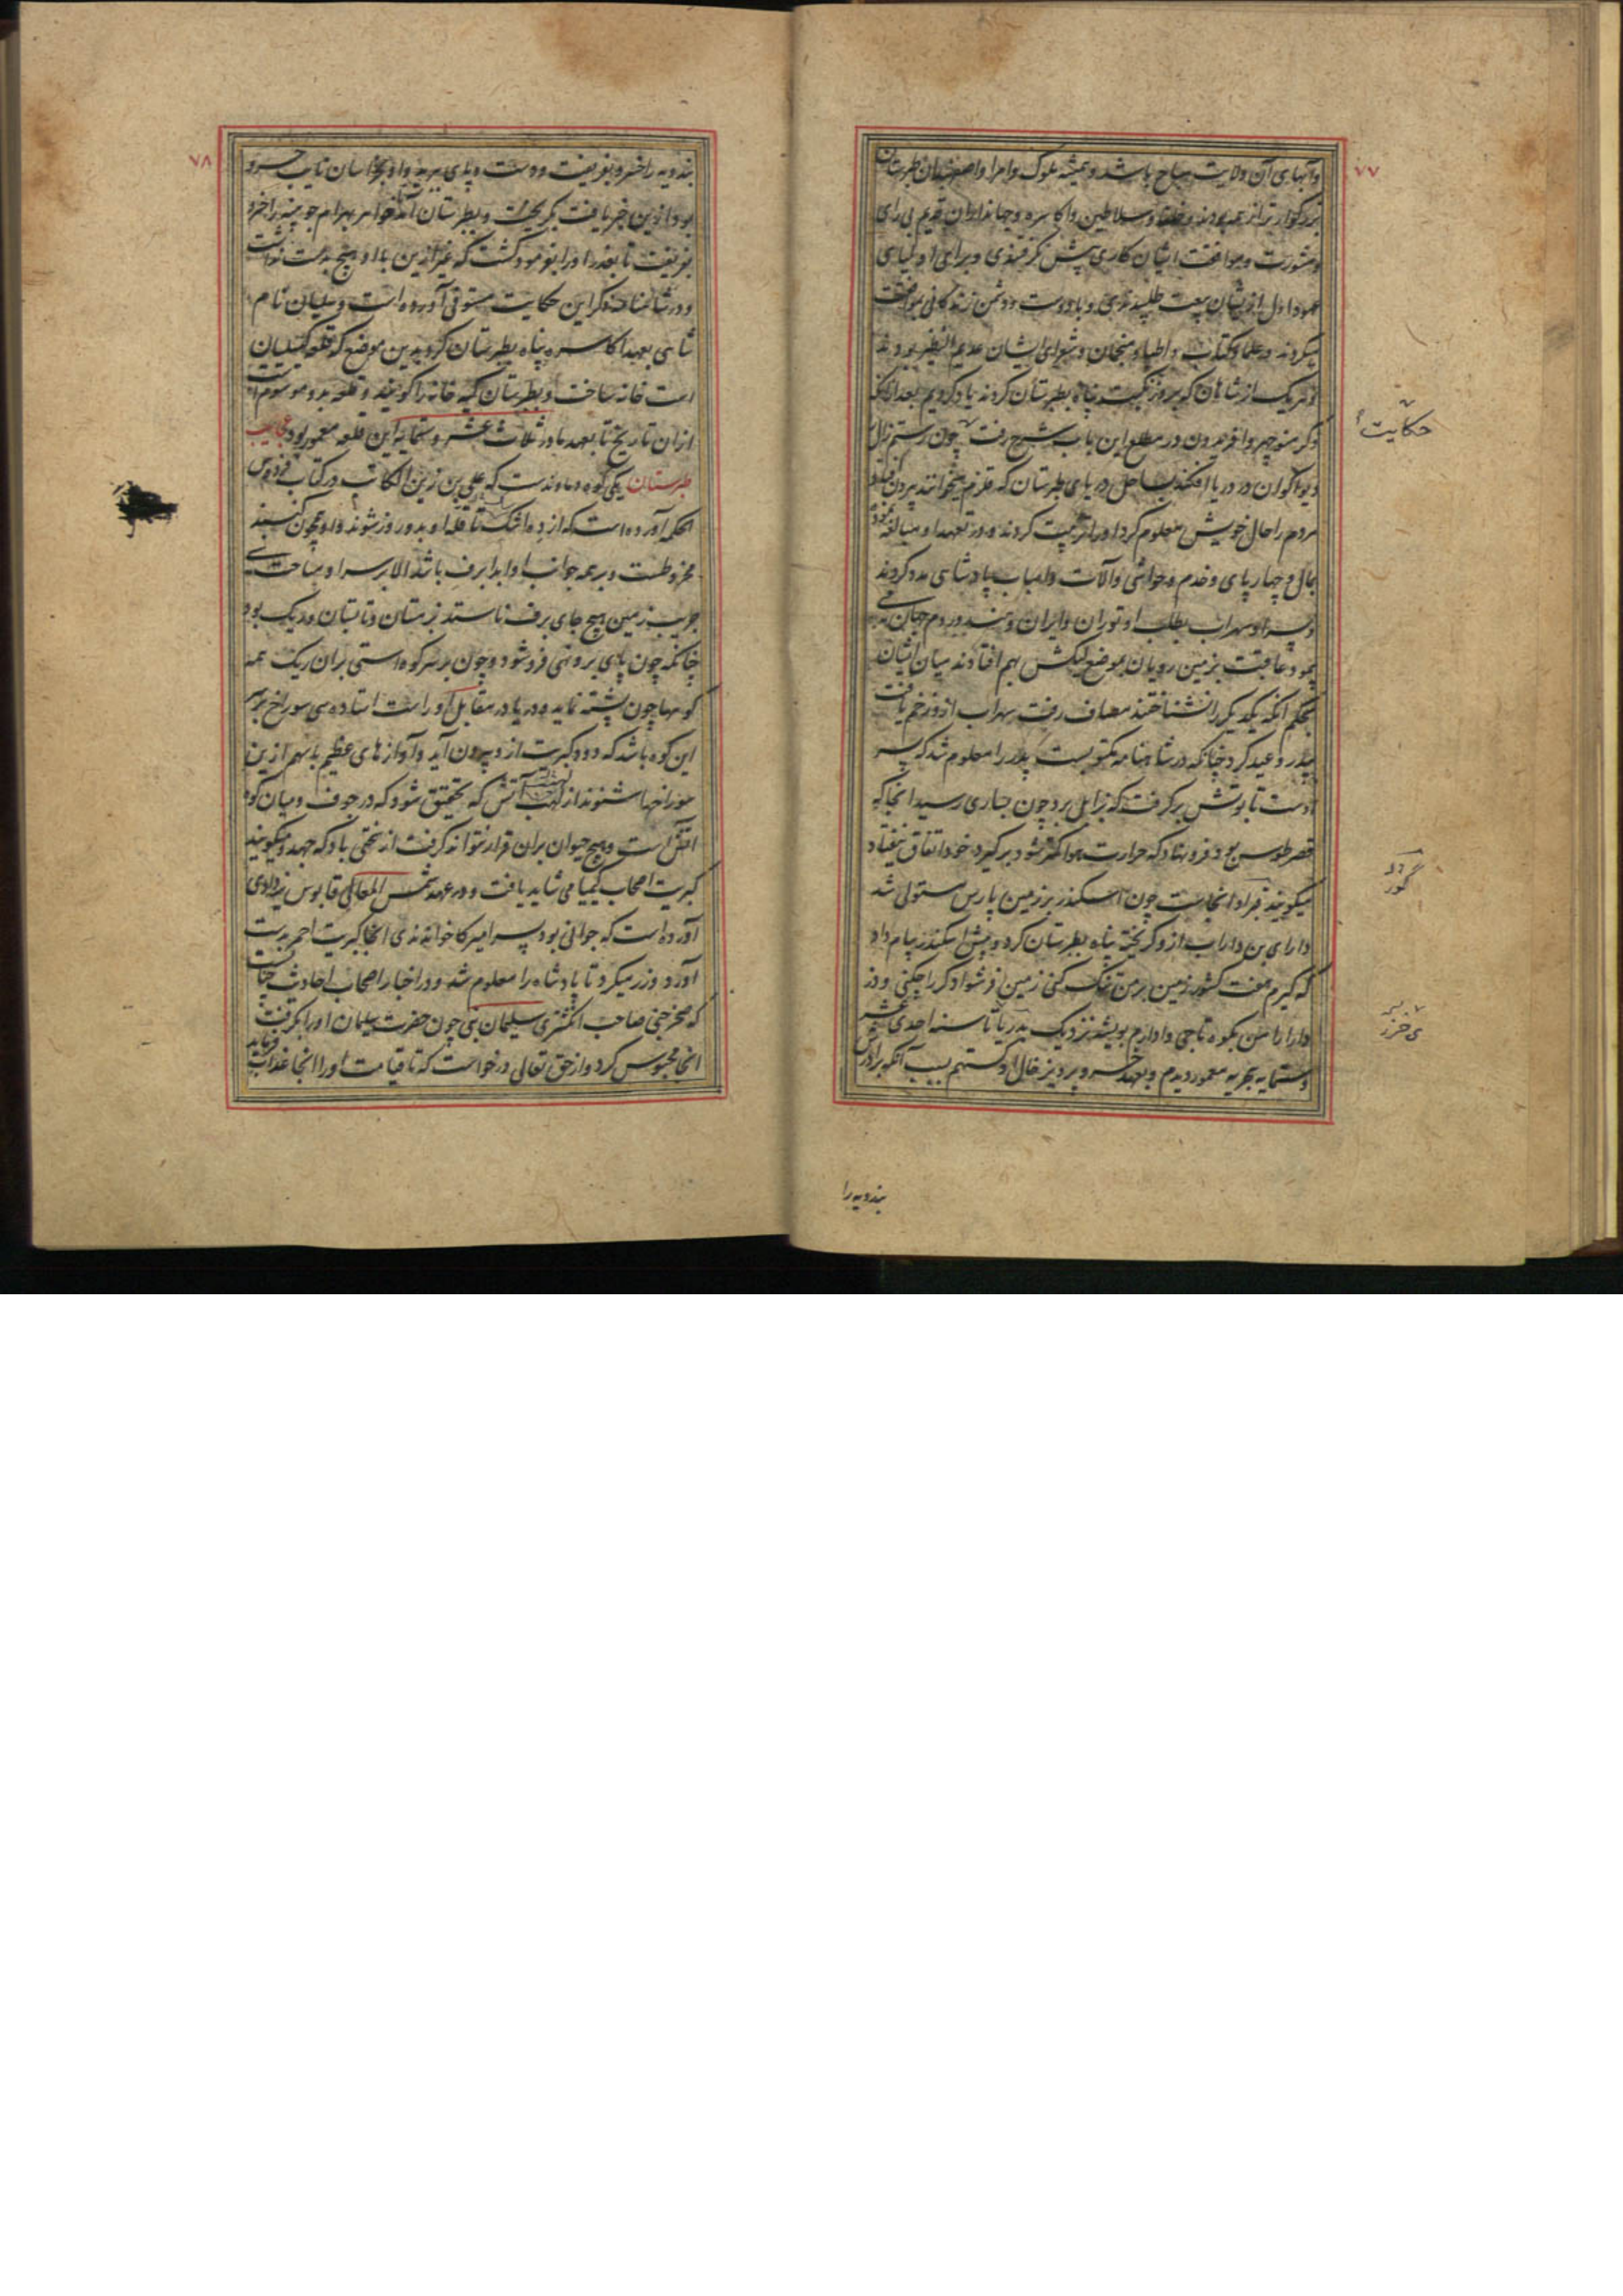 ۷۷
وآبهای آن ولایت مباح باشد و همیشه ملوک وامرا واصفهبدان طبرستان
بزرگوارتر از همه بودند و خلفا وسلاطین واکاسره وجهانداران قدیم بی رای
ومشورت وموافقت ایشان کاری پیش نگرفتندی وبرای اولیای
عهود اول ازیشان بیعت طلبیدندی وبا دوست ودشمن زندگانی بموافقت
میکردند وعلما وکتاب واطبا ومنجمان وشعرای ایشان عدیم النظیر بودند
وهریک از شاهان که بروز نکبت پناه بطبرستان کردند یاد کردیم بعد ازآنکه
ذکر منوچهر وافریدون در مطلع این باب بشرح رفت چون رستم زال
دیو اکوان در دریا افکند بساحل دریای طبرستان که قلزم میخوانند بیرون افتاد
مردم را حال خویش معلوم کرد اورا تربیت کردند ودر تعهد او مبالغه نموده
بمال وچهارپای وخدم وحواشی وآلات واسباب پادشاهی مدد کردند
وپسر او سهراب بطلب او توران وایران وهند وروم جهان می
پیمود عاقبت بزمین رویان بموضع لیکش بهم افتادند میان ایشان
بحکم آنکه یکدیگر را نشناختند مصاف رفت سهراب ازو زخم یافت
بپدر وعید کرد چنانکه در شاهنامه مکتوبست پدر را معلوم شد که پسر
اوست تابوتش برگرفت که بزابل برد چون بساری رسید انجا که
قصر طوس بود فرونهاد که حرارت هوا کمتر شود برگیرد خود اتفاق نیفتاد
میگویند قبر او انجاست چون اسکندر بر زمین پارس مستولی شد
دارای بن داراب ازو گریخته پناه بطبرستان کرد وپیش اسکندر پیام داد
که گیرم هفت کشور زمین بر من تنگ کنی زمین فرشوادگر را چکنی ودژ
دارا را من بکوه تاجی وادارم بویشه نزدیک بدریا تا سنه احدی عشر
وستمایه بحریه معمور دیدم وبعهد خسرو پرویز خال او گستهم بسبب آنکه برادرش
حکایت
بندویه را
۷۸
بندویه را خسرو بفریفت ودست وپای ببرید واو بخراسان نایب خسرو
بود ازین خبر یافت بگریخت وبطبرستان آمد خواهر بهرام جوبینه را خسرو
بفریفت تا بغدر اورا بفرمود کشت که غیر ازین با او هیچ بدست نداشت
ودر شاهنامه ذکر این حکایت مستوفی آورده است وگیلیان نام
شاهی بعهد اکاسره پناه بطبرستان کرد بدین موضع که قلعه گیلیان
است خانه ساخت وبطبرستان کیه خانه را گویند وقلعه بدو موسوم است
ازان تاریخ تا بعهد ما در ثلاث عشر وستمایه این قلعه معمور بود عجایب
طبرستان یکی کوه دماوندست که علی بن زین الکاتب در کتاب فردوس
الحکمه آورده است که از ده اشک تا قله او بدو روز شوند واو همچون گنبد
مخروطست وبر همه جوانب او ابدا برف باشد الا بر سر او مساحت سی
جریب زمین هیچ جای برف نایستد زمستان وتابستان وریگ بود
چنانکه چون پای برونهی فروشود وچون بر سر کوه ایستی بران ریگ همه
کوهها چون پشته نماید ودریا در مقابل او راست استاده سی سوراخ بر سر
این کوه باشد که دود کبریت ازو بیرون آید وآوازهای عظیم باسهم ازین
سوراخها شنوند از لهب آتش که تحقیق شود که در جوف ومیان کوه
آتش است وهیچ حیوان بران قرار نتواند گرفت از سختی باد که جهد ومیگویند
کبریت اصحاب کیمیا می شاید یافت ودر عهد شمس المعالی قابوس یزدادی
آورده است که جوانی بود پسر امیرکا خواندندی انجا کبریت احمر بدست
آورد وزر میکرد تا پادشاه را معلوم شد ودر اخبار اصحاب احادیث چنانست
که صخر جنی صاحب انگشتری سلیمان نبی چون حضرت سلیمان اورا بگرفت
انجا محبوس کرد واز حق تعالی درخواست که تا قیامت اورا انجا عذاب فرماید